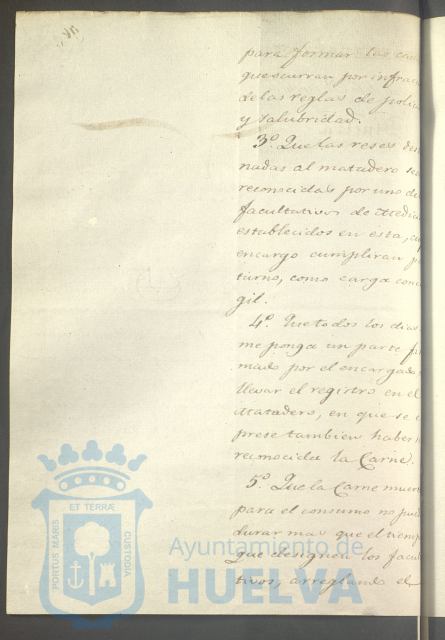 para formar las
que ocurran por infrac
de las reglas de polici
y salubridad.
3º Que las reses des
nadas al matadero se
reconocidas por uno de
facultativos de Medic
establecidos en esta, cu
encargo cumpliran p
turno, como carga conc
gil.
4º. Que todos los dias
me ponga un parte fir
mado por el encargado
llevar el registro en el
Matadero, en que se e
prese tambien haber
reconocida la Carne.
5º Que la Carne muer
para el consumo no pue
durar mas que el tiemp
que designen los facul
tivos, arreglando el
ET TERRÆ
PORTUS MARIS
CUSTODIA
Ayuntamiento de
HUELVA